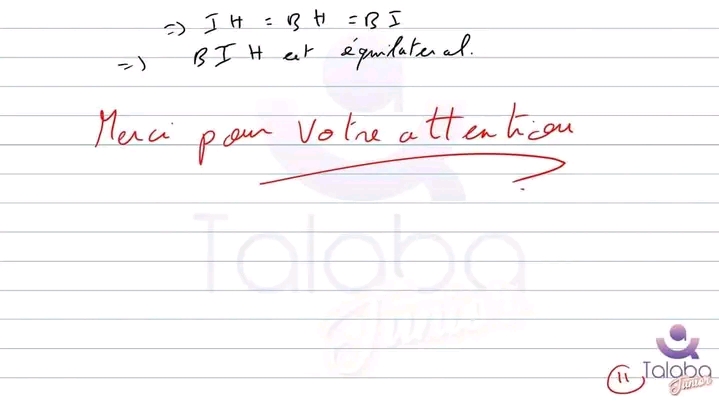 => IH = BH = BI
=> BIH est équilateral.
Merci pour votre attention
Talaba
Junior
11
Talaba
Junior